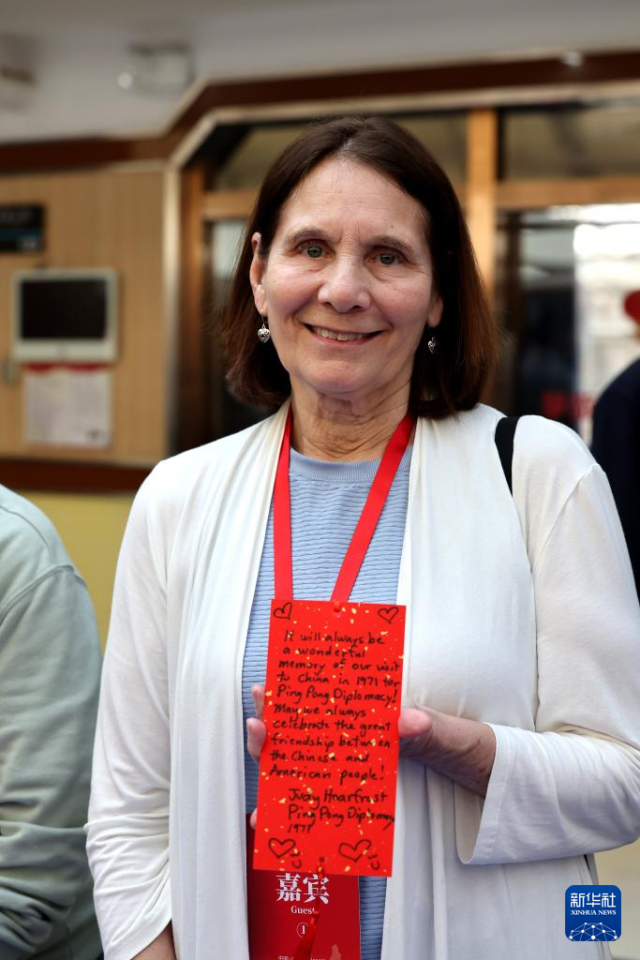 It will always be
a wonderful
memory of our visit
to China in 1971 for
Ping Pong Diplomacy!
May we always
celebrate the great
friendship between
the Chinese and
American people!
Judy Hoarfrost
Ping Pong Diplomacy
1971
嘉宾
Guest
1
新华社
XINHUA NEWS